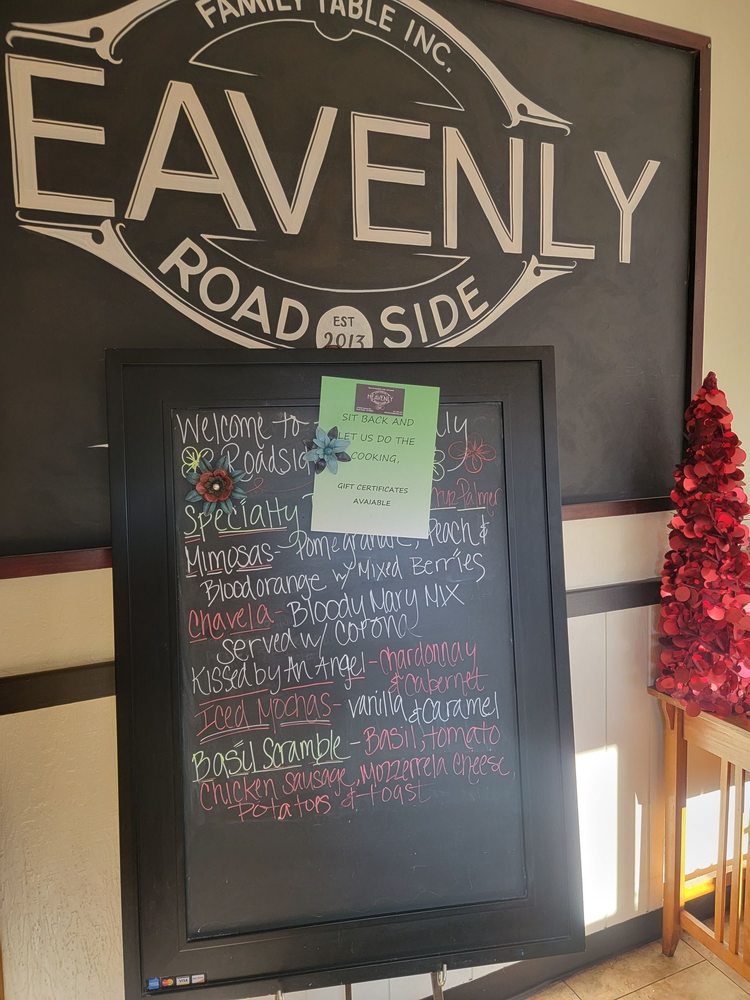 FAMILY TABLE INC.
EAVENLY
ROAD SIDE
EST
2013
HEAVENLY
SIT BACK AND
LET US DO THE
COOKING,
GIFT CERTIFICATES
AVAIABLE
Welcome to
Roadsid
Specialty Palmer
Mimosas - Pomegranate, Peach &
Bloodorange w/ Mixed Berries
Chavela - Bloody Mary Mix
Served w/ Corona
Kissed by An Angel - Chardonnay
& Cabernet
Iced Mochas - vanilla & Caramel
Basil Scramble - Basil, tomato
Chicken Sausage, Mozzerrela Cheese,
Potatoes & toast
VISA